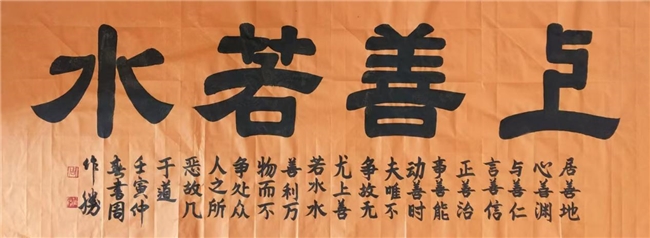 上善若水
居善地
心善渊
与善仁
言善信
正善治
事善能
动善时
夫唯不
争故无
尤上善
若水水
善利万
物而不
争处众
人之所
恶故几
于道
壬寅仲
春书周
作胜